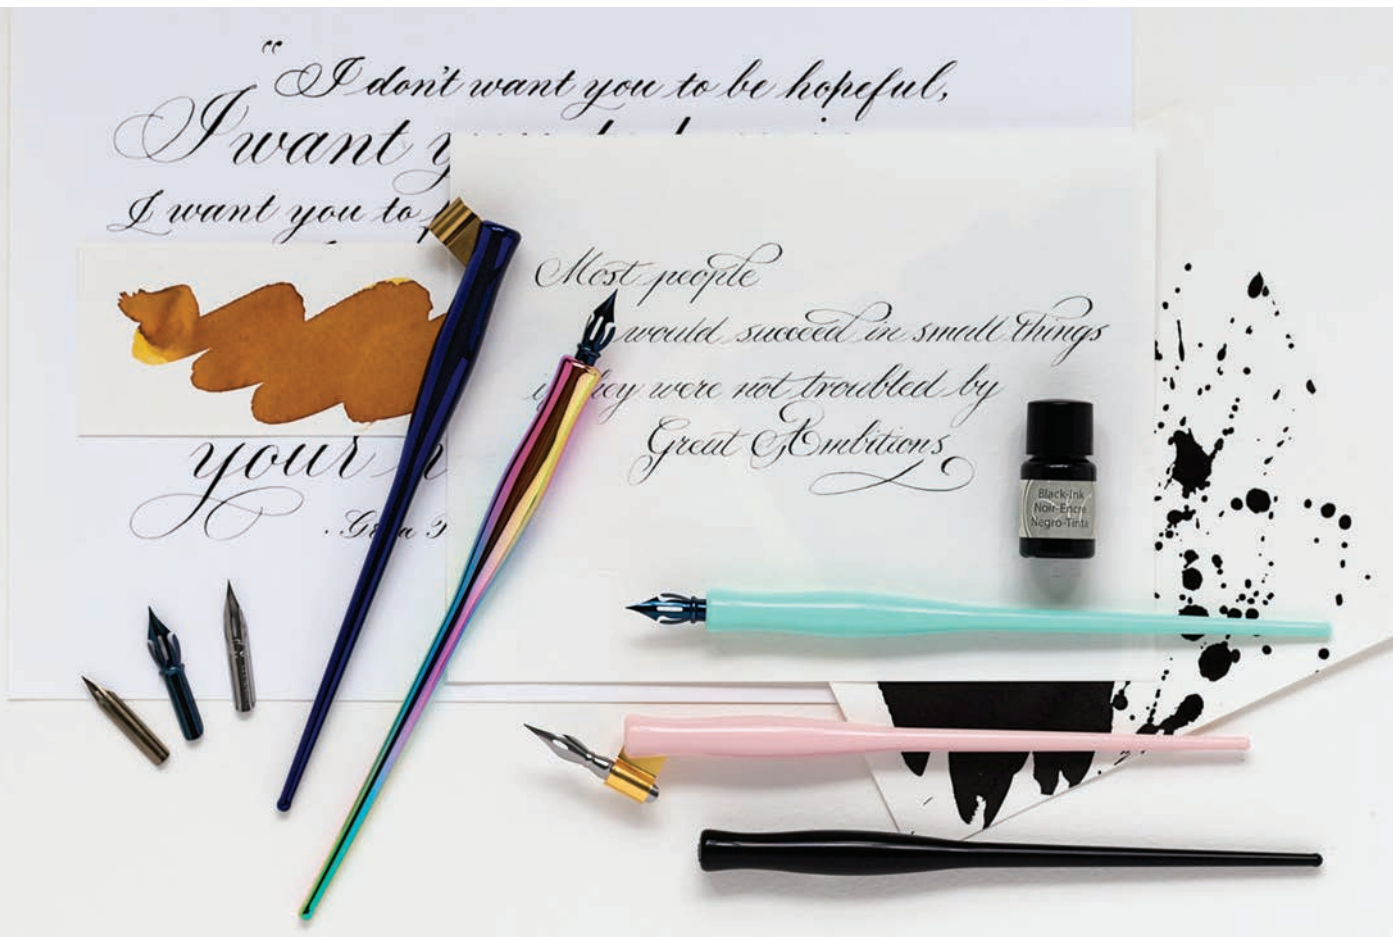 “I don't want you to be hopeful,
I want
I want you to
your
Most people
would succeed in small things
they were not troubled by
Great Ambitions
Black-Ink
Noir-Encre
Negro-Tinta